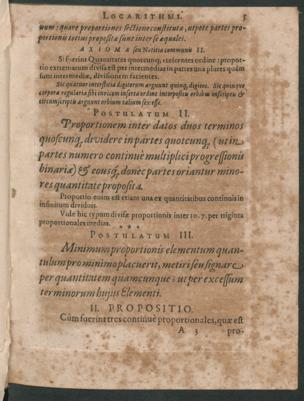 LOGARITHMI. 5
uum: quare proportiones sectione constitutæ, utpote partes pro-
portionis totius propositæ sunt inter se æquales.
AXIOMA seu Notitia communis II.
Si fuerint Quantitates quotcunq, ... ordine: propor-
tio extremarum divisa est per intermedias in partes una plures quàm
sunt intermediæ, divisionem facientes.
Sic quatuor interstitia digitorum arguunt quinq, digitos. Sic quinque
corpora regularia sibi invicem inserta ordine interpositu orbium inscriptis &
circumscriptis arguunt orbium talium sex esse.
POSTULATUM II.
Proportionem inter datos duos terminos
quoscunq, dividere in partes quotcunq, (ut in
partes numero continuè multiplici progressionis
binariæ) & eousq, donec partes oriantur mino-
res quantitate proposita.
Proportio enim est etiam una ex quantitatibus continuis in
infinitum dividuis.
Vide hic typum divisæ proportionis inter 10. 7. per triginta
proportionales medias.
***
POSTULATUM III.
Minimum proportionis elementum quan-
tulum pro minimo placuerit, metiri seu signare
per quantitatem quamcunque: ut per excessum
terminorum hujus Elementi.
II. PROPOSITIO.
Cùm fuerint tres continuè proportionales, quæ est
A 3 pro-